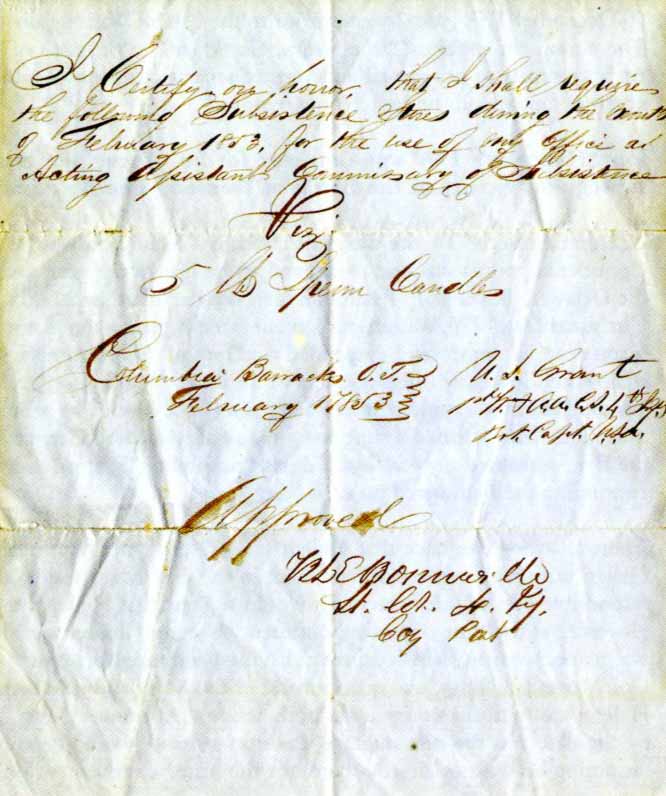 I Certify on honor, that I shall require
the following Subsistence Stores during the month
of February 1853, for the use of my Office as
Acting Assistant Commissary of Subsistence
Viz;
5 lb Sperm Candles
Columbia Barracks O.T.
U. S. Grant
February 1st 1853
1st Lt. & A.A.C.S. 4th Inf.
Bvt. Capt. U.S.A.
Approved
B L E Bonneville
Lt. Col. 4. Iy.
Cog Post